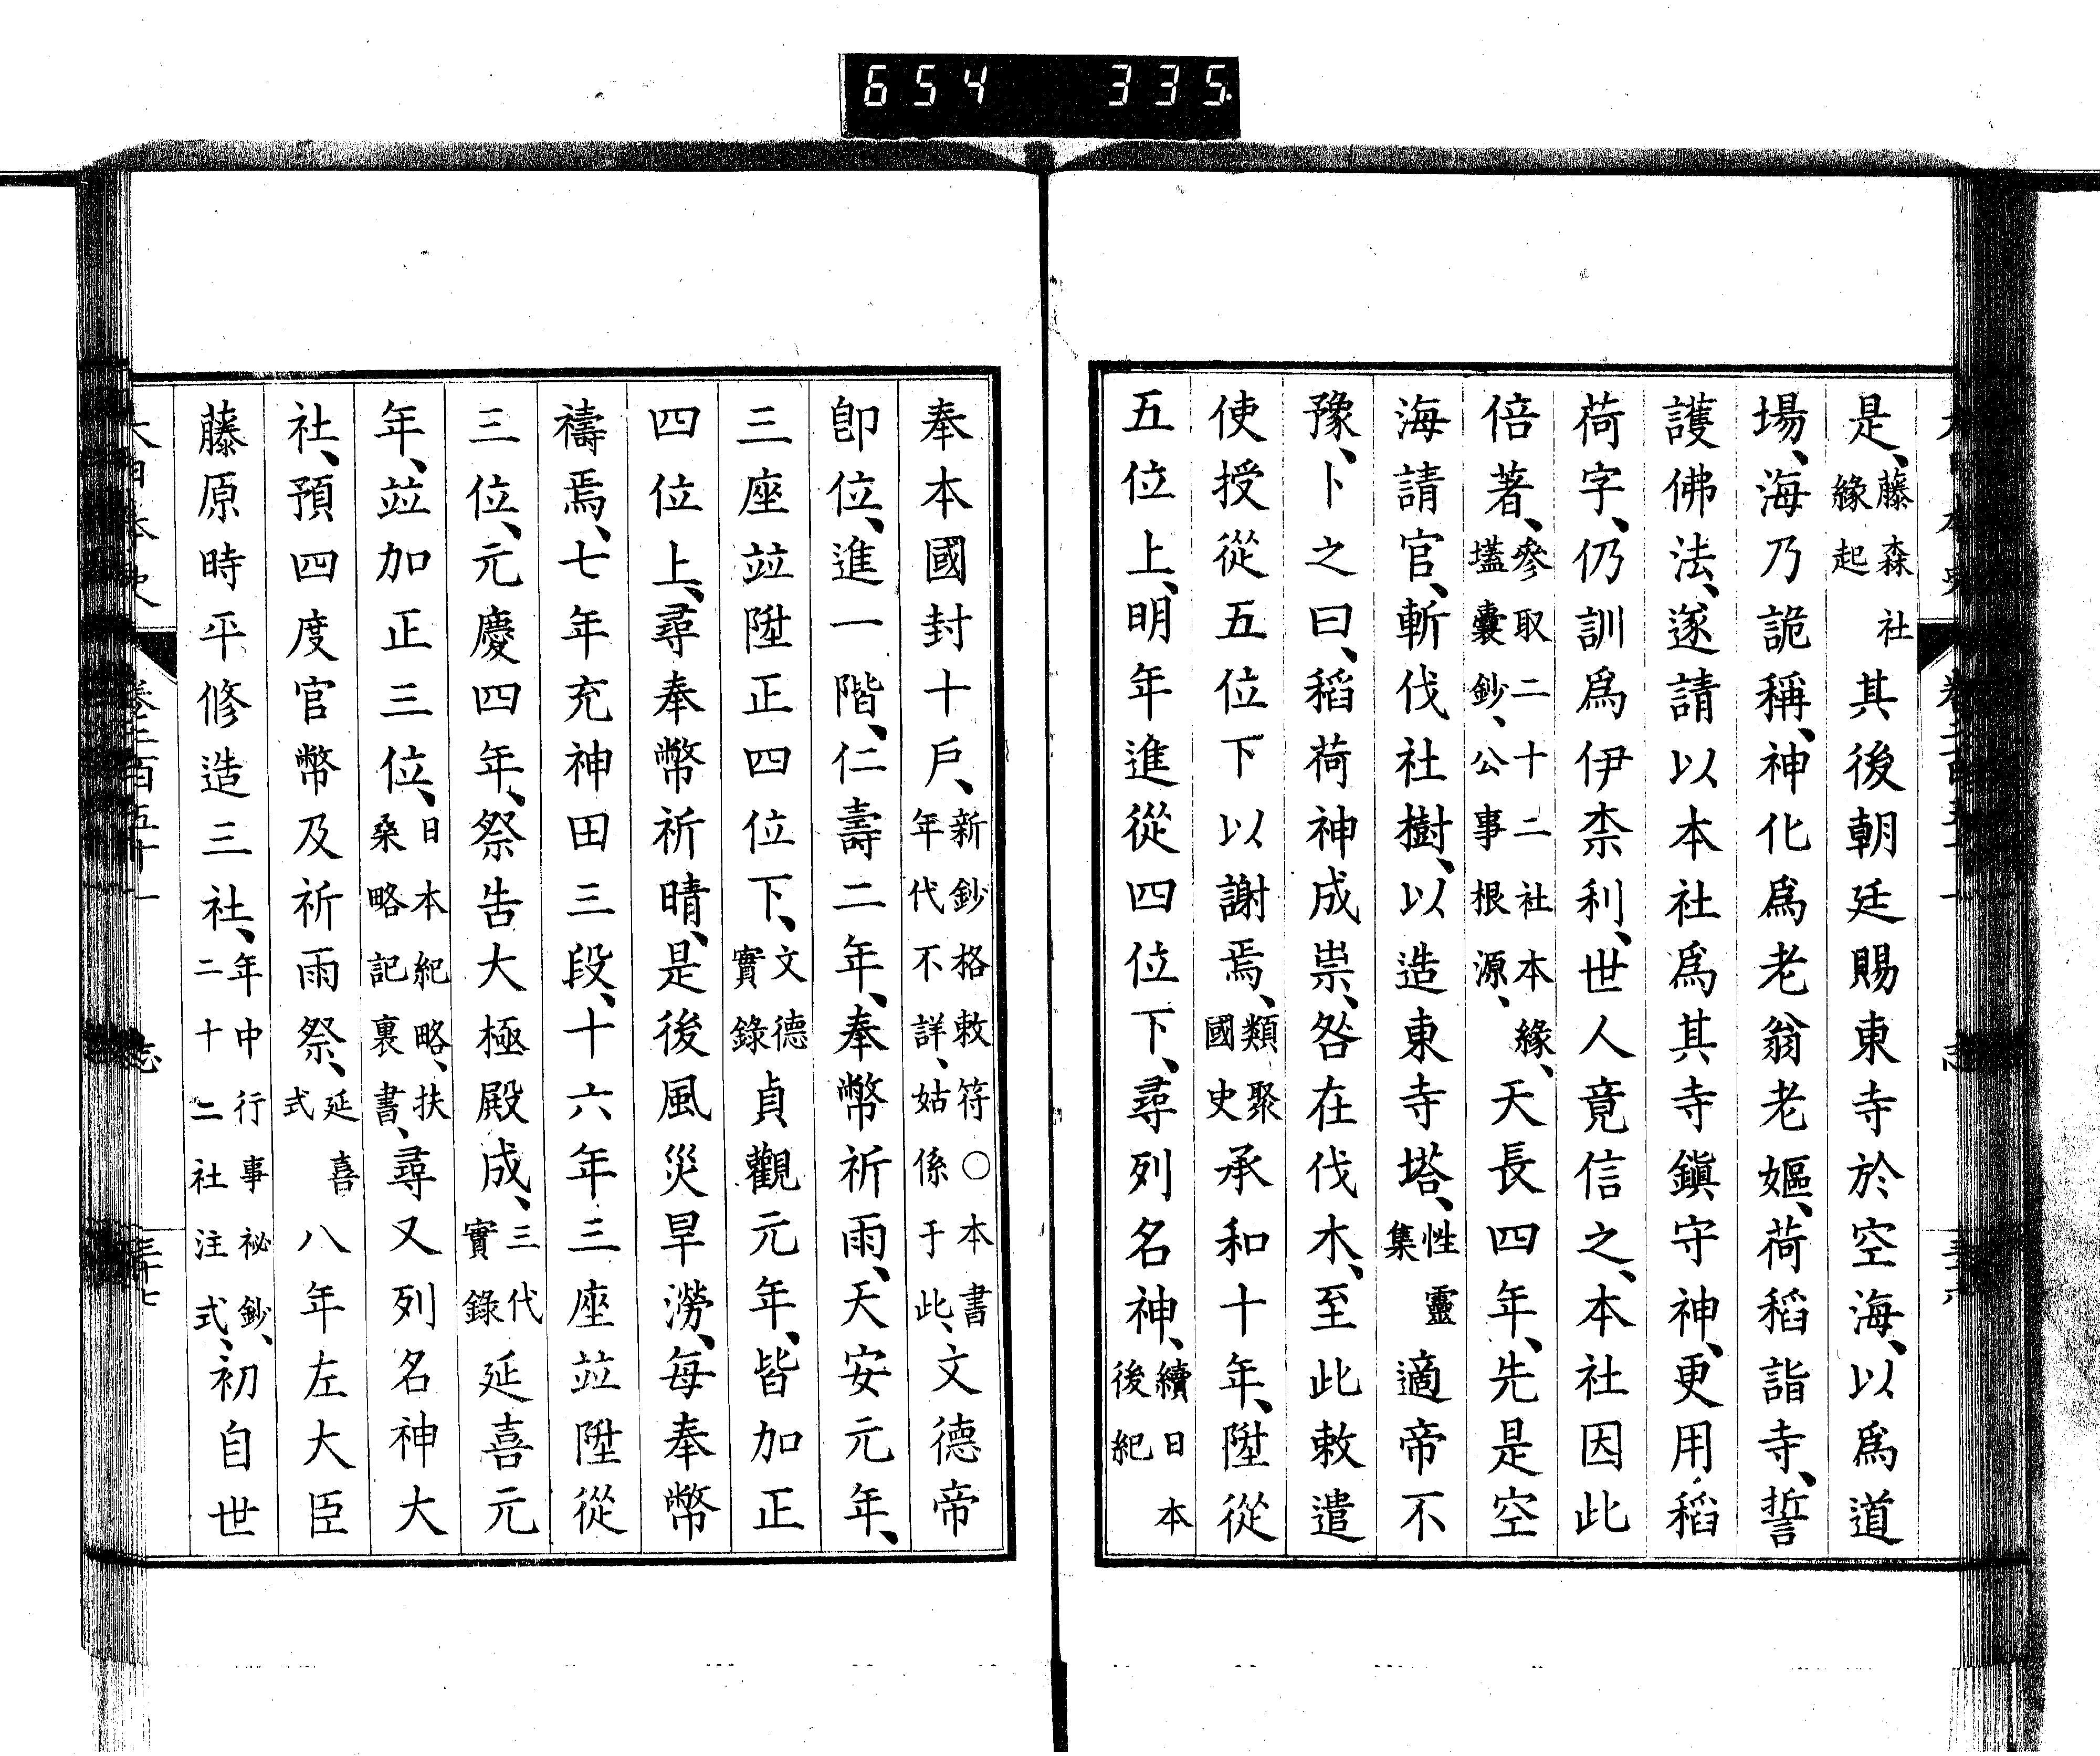 654 335
是、藤森社緣起其後朝廷賜東寺於空海、以爲道
場、海乃詭稱、神化爲老翁老嫗、荷稻詣寺、誓
護佛法、遂請以本社爲其寺鎭守神、更用稻
荷字、仍訓爲伊柰利、世人竟信之、本社因此
倍著、參取二十二社本緣、壒囊鈔、公事根源、天長四年、先是空
海請官、斬伐社樹、以造東寺塔、性靈集適帝不
豫、卜之曰、稻荷神成祟、咎在伐木、至此敕遣
使授從五位下以謝焉、類聚國史承和十年、陞從
五位上、明年進從四位下、尋列名神、續日本後紀
奉本國封十戶、新鈔格敕符○本書年代不詳、姑係于此、文德帝
卽位、進一階、仁壽二年、奉幣祈雨、天安元年、
三座竝陞正四位下、文德實錄貞觀元年、皆加正
四位上、尋奉幣祈晴、是後風災旱澇、每奉幣
禱焉、七年充神田三段、十六年三座竝陞從
三位、元慶四年、祭告大極殿成、三代實錄延喜元
年、竝加正三位、日本紀略、扶桑略記裏書、尋又列名神大
社、預四度官幣及祈雨祭、延喜式八年左大臣
藤原時平修造三社、年中行事祕鈔、二十二社注式、初自世
大日本史 卷二百五十一 志 三十七